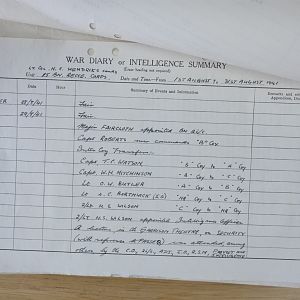 WAR DIARY or INTELLIGENCE SUMMARY
(Erase heading not required)
LT COL N. E. HENDRIKS
Unit 25 BN. RECCE. CORPS. Date and Time—From 1ST AUGUST 31ST AUGUST 1941
Date Hour Summary of Events and Information
28/8/41 Fair
29/8/41 Fair
Major FAIRCLOTH appointed BN 2i/c.
Capt ROBERTS now commands "B" Coy
Inter Coy Transfers.
Capt T.C. WATSON "B" Coy to "A" Coy
Capt W.M. HUTCHINSON "A" Coy to "C" Coy
Lt O.W. BUTLER "A" to "B"
Lt A.C. "HQ" Coy to "C" Coy
2/Lt H.S. WILSON "C" to HQ Coy
2/Lt H.S. WILSON appointed Intelligence Officer.
A lecture in the GARRISON THEATRE, on SECURITY
(with reference to) was attended among
others by the C.O., 2i/c, ADJ, I.O., R.S.M.,